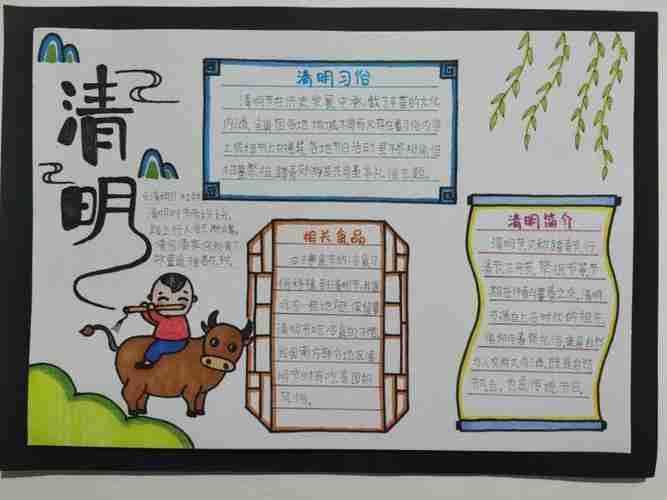 清明
清明时节雨纷纷，
路上行人欲断魂。
借问酒家何处有？
牧童遥指杏花村。
清明习俗
清明节在历史发展中承载了丰富的文化
内涵，全国因各地地域不同而又存在着习俗内容
上或细节上的差异，各地节日活动虽不尽相同，但
扫墓祭祖、踏青郊游是共同基本礼俗主题。
相关食品
由于寒食节的
清明节吃冷食的习惯
我国南方部分地区清
明节时有吃青团的
风俗。
清明简介
清明节又称踏青节、行
清节、三月节、祭祖节等，节
期在仲春与暮春之交。清明
节源自上古时代的祖先
信仰与春祭礼俗，兼具自然
与人文两大内涵，既是自然
节气，也是传统节日。